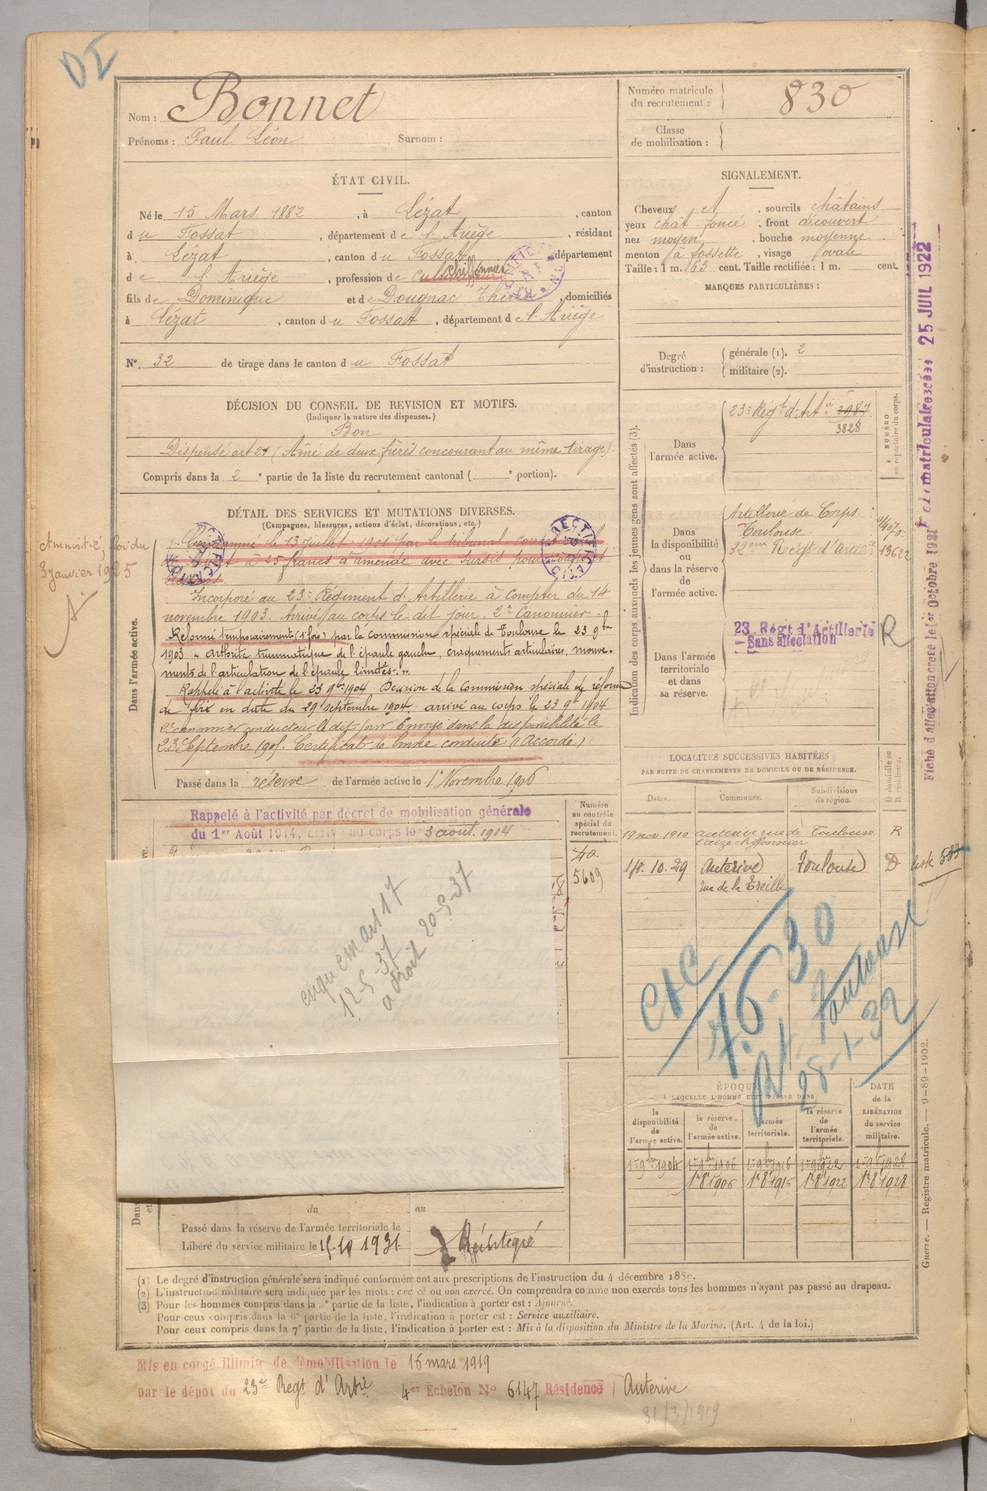 DI
Nom : Bonnet
Prénoms : Paul Léon Surnom :
Numéro matricule du recrutement : 830
Classe de mobilisation :
ÉTAT CIVIL.
Né le 15 Mars 1882, à Lézat, canton
du Fossat, département de l'Ariège, résidant
à Lézat, canton du Fossat, département
de l'Ariège, profession de chiffonnier
fils de Dominique et de Dougnac Thérèse, domiciliés
à Lézat, canton du Fossat, département de l'Ariège
N° 32 de tirage dans le canton du Fossat
SIGNALEMENT.
Cheveux et, sourcils châtains
yeux chât. foncé, front découvert
nez moyen, bouche moyenne
menton à fossette, visage ovale
Taille : 1 m. 63 cent. Taille rectifiée : 1 m. cent.
MARQUES PARTICULIÈRES :
Degré d'instruction : générale (1). 2
militaire (2).
DÉCISION DU CONSEIL DE REVISION ET MOTIFS.
(Indiquer la nature des dispenses.)
Bon
Dispensé art 21 (Aîné de deux frères concourant au même tirage)
Compris dans la 2e partie de la liste du recrutement cantonal ( e portion).
DÉTAIL DES SERVICES ET MUTATIONS DIVERSES.
(Campagnes, blessures, actions d'éclat, décorations, etc.)
Amnistié, loi du
3 janvier 1925
Dans l'armée active.
Incorporé au 23e Régiment d'Artillerie à compter du 14
novembre 1903. Arrivé au corps le dit jour. 2e Canonnier.
Réformé temporairement (1 fois) par la commission spéciale de Toulouse le 23 9bre
1903 « Arthrite traumatique de l'épaule gauche, craquements articulaires, mouve-
ments de l'articulation de l'épaule limités. »
Rappelé à l'activité le 23 9bre 1904 Décision de la Commission spéciale de réforme
de Foix en date du 29 septembre 1904, arrivé au corps le 23 9bre 1904
2e canonnier conducteur le dit jour Envoyé dans la disponibilité le
23 Septembre 1905. Certificat de bonne conduite « Accordé »
Passé dans la réserve de l'armée active le 1er Novembre 1906
Rappelé à l'activité par décret de mobilisation générale
du 1er Août 1914, arrivé au corps le 3 août 1914
Numéro au contrôle spécial du recrutement.
5609
enqu em art 17
12-5-37
a droit 20-5-37
du au
Passé dans la réserve de l'armée territoriale le
Libéré du service militaire le 15.10 1931
Réintégré
Indication des corps auxquels les jeunes gens sont affectés (3).
Dans l'armée active.
23e Régt d'Art.ie 2987
3828
NUMÉRO au répertoire du corps.
Dans la disponibilité ou dans la réserve de l'armée active.
Artillerie de Corps
Toulouse
Dans l'armée territoriale et dans sa réserve.
23 Régt d'Artillerie
Sans affectation
R
25 JUIL 1922
LOCALITÉS SUCCESSIVES HABITÉES
PAR SUITE DE CHANGEMENTS DE DOMICILE OU DE RÉSIDENCE.
Dates. Communes. Subdivisions de région. D domicile ou R résidence.
Toulouse R
18.10.29 Auterive Toulouse D
rue de la Treille
liste 583
ÉPOQUE
À LAQUELLE L'HOMME DOIT PASSER DANS
DATE de la LIBÉRATION du service militaire.
la disponibilité de l'armée active. la réserve de l'armée active. l'armée territoriale. la réserve de l'armée territoriale.
1er 9bre 1904 1er 9bre 1906 1er 9bre 1916 1er 9bre 1922 1er 9bre 1928
1er 8bre 1906 1er 8bre 1916 1er 8bre 1922 1er 8bre 1928
28-1-32
Guerre. — Registre matricule. — 9-89-1902.
(1) Le degré d'instruction générale sera indiqué conformément aux prescriptions de l'instruction du 4 décembre 1889.
(2) L'instruction militaire sera indiquée par les mots : exercé ou non exercé. On comprendra comme non exercés tous les hommes n'ayant pas passé au drapeau.
(3) Pour les hommes compris dans la partie de la liste, l'indication à porter est : Ajourné.
Pour ceux compris dans la 6e partie de la liste, l'indication à porter est : Service auxiliaire.
Pour ceux compris dans la 7e partie de la liste, l'indication à porter est : Mis à la disposition du Ministre de la Marine. (Art. 4 de la loi.)
Mis en congé illimité de démobilisation le 16 mars 1919
par le dépôt du 23e Régt d'Artie 4er Echelon N° 6147 Résidence Auterive
31/3/1919